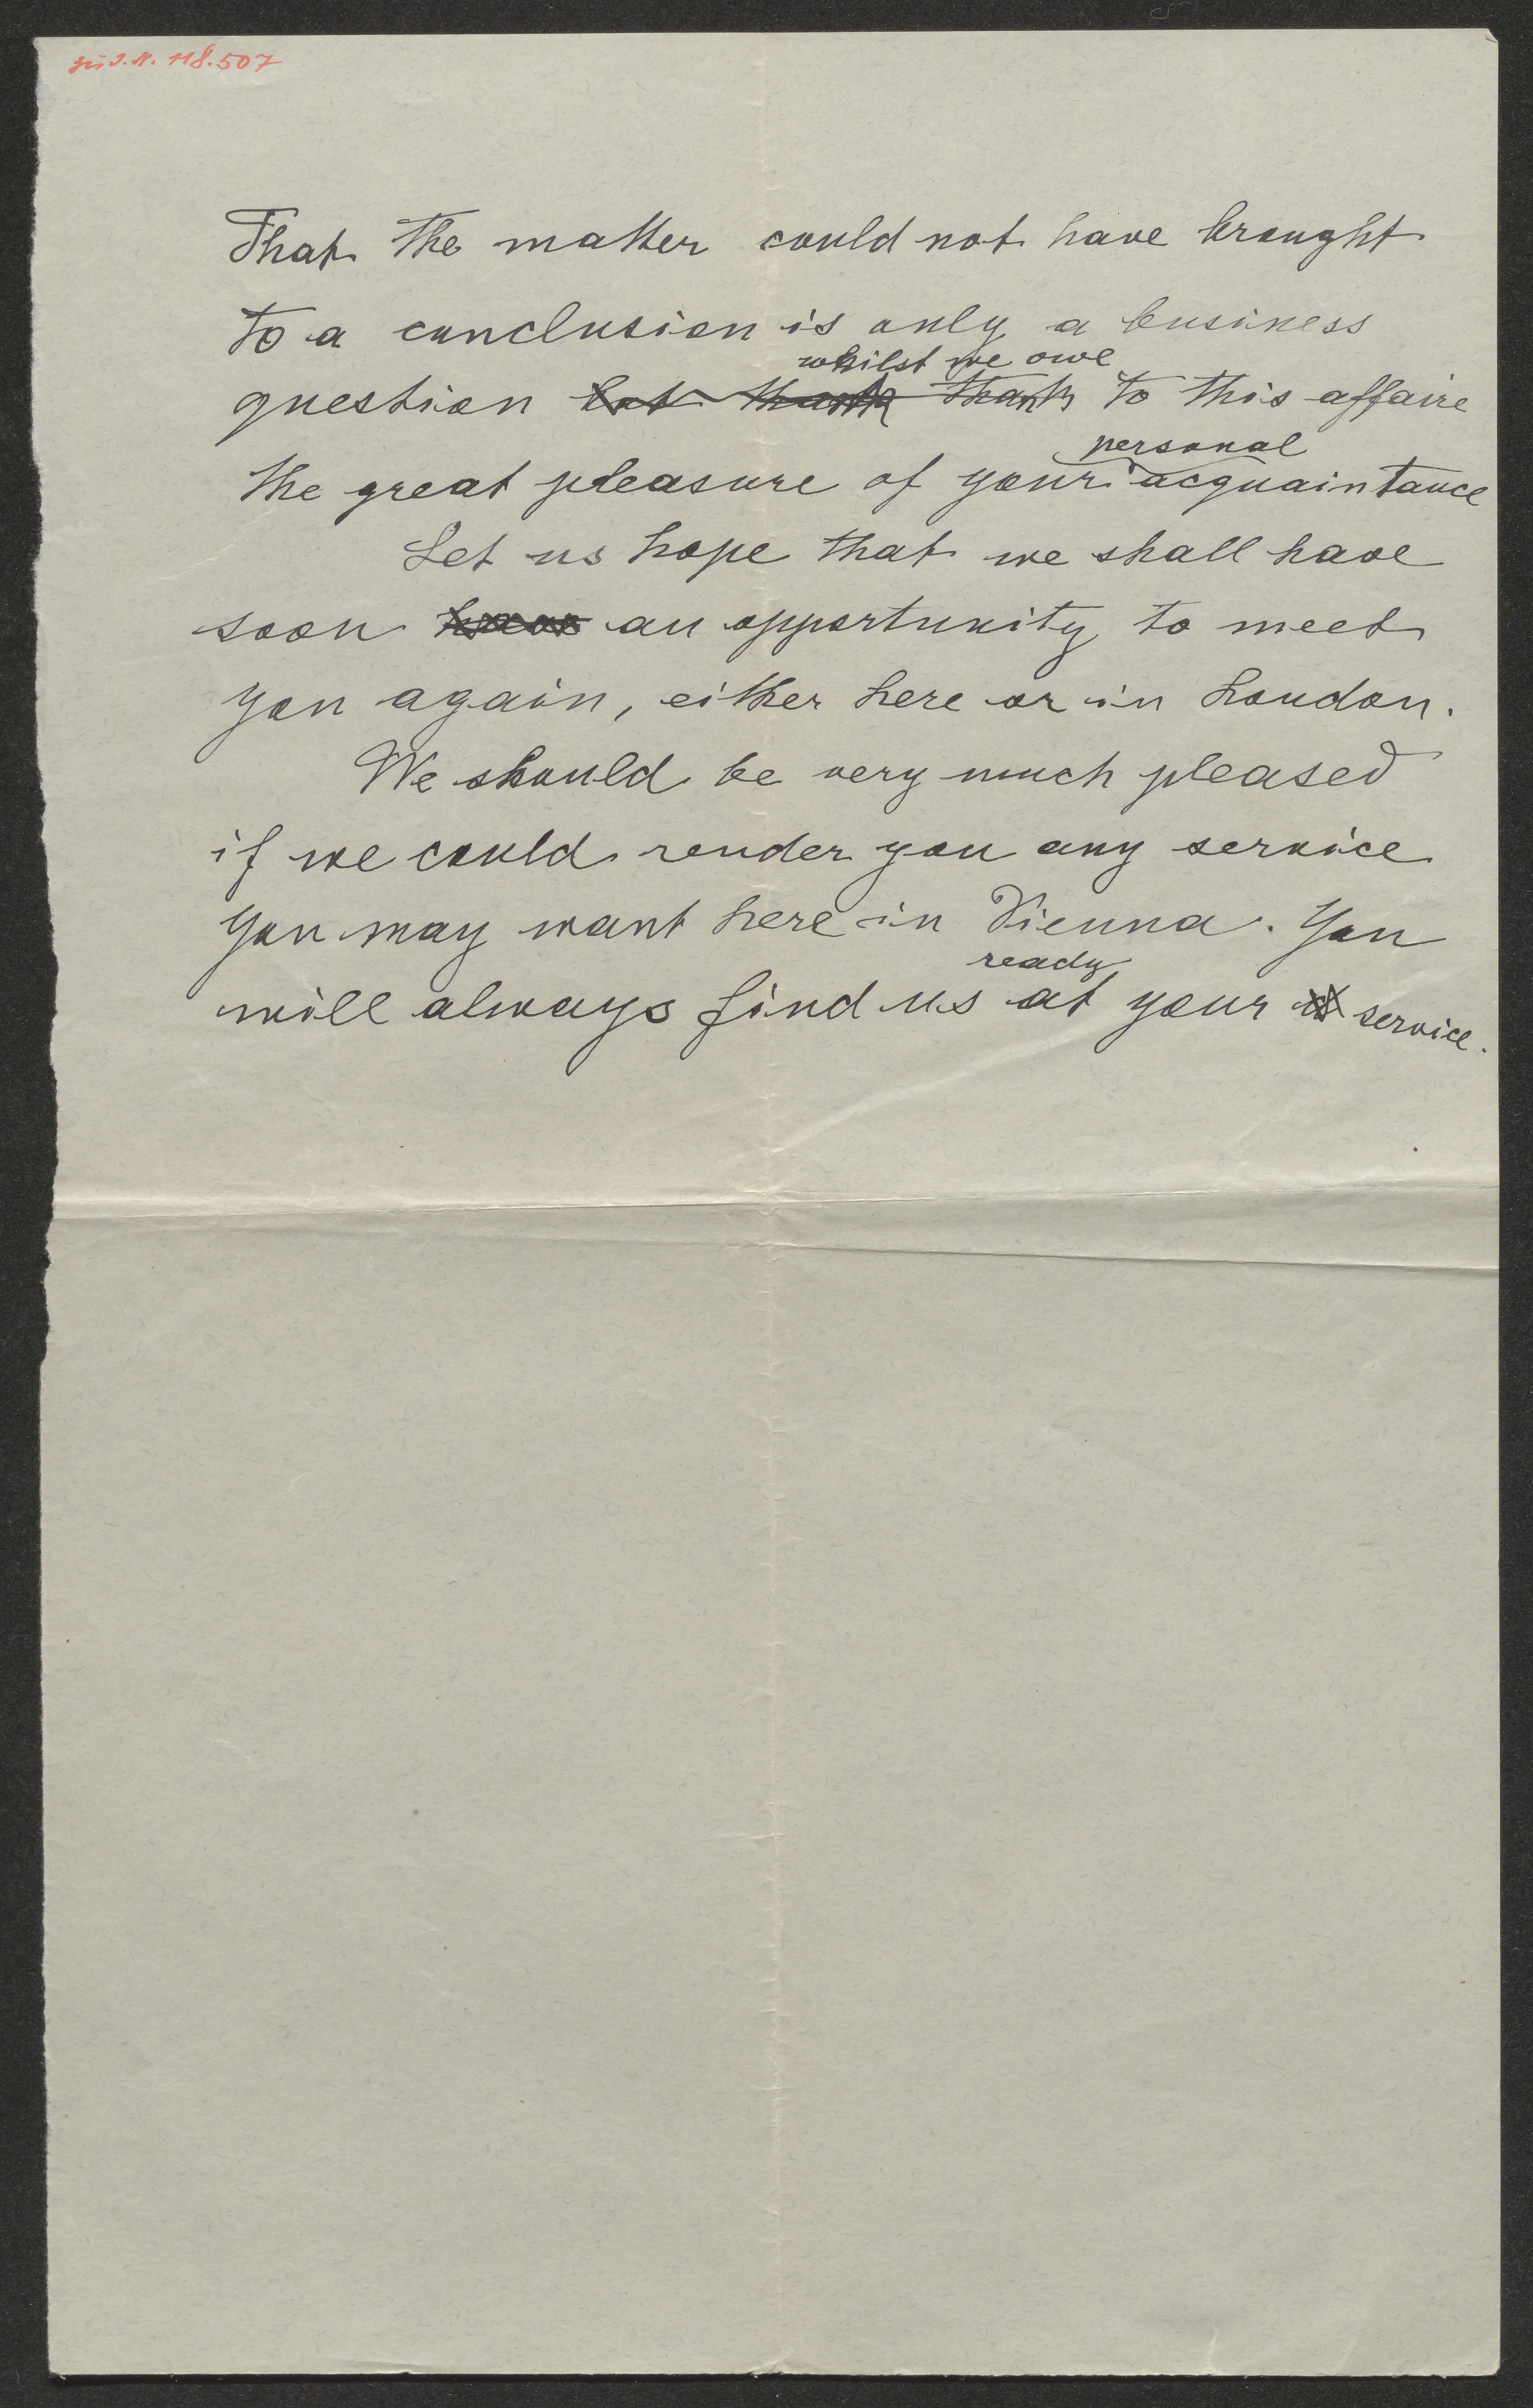 zu I.N. 118.507
That the matter could not have brought
to a conclusion is only a business
whilst we owe
question but thank thanks to this affaire
personal
the great pleasure of your acquaintance
Let us hope that we shall have
soon have an opportunity to meet
you again, either here or in London.
We should be very much pleased
if we could render you any service
you may want here in Vienna. You
ready
will always find us at your service.